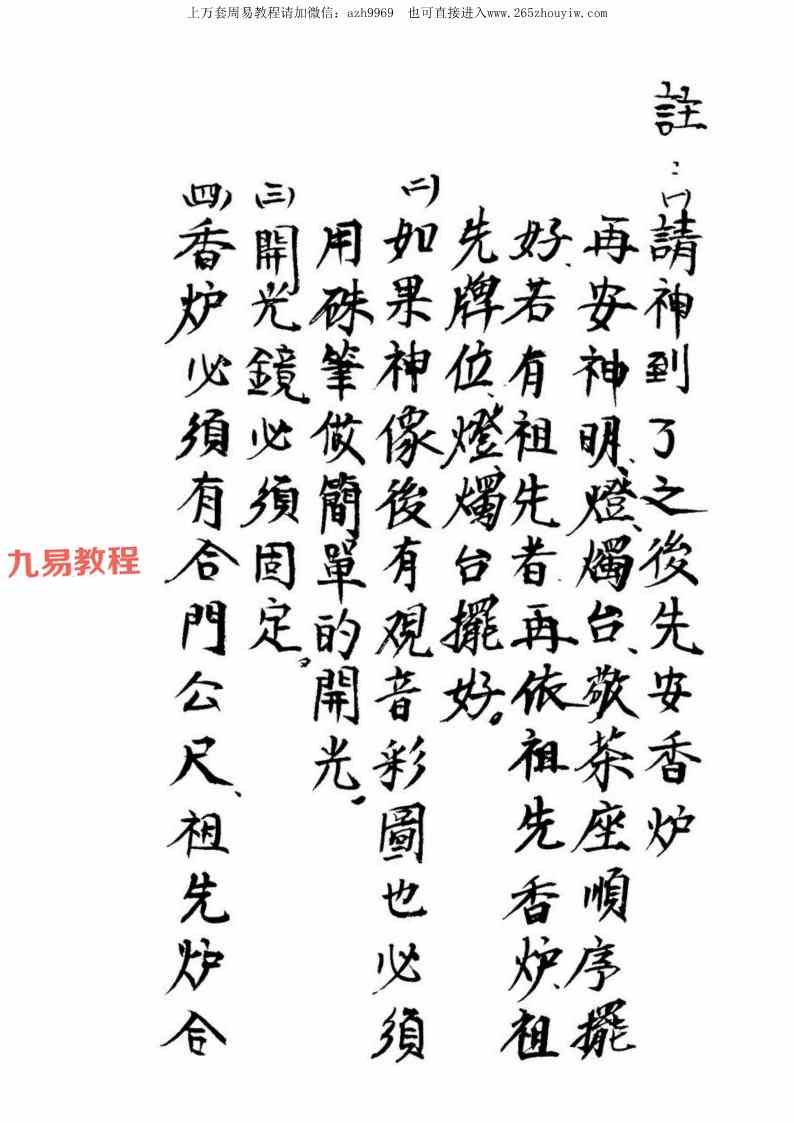 上万套周易教程请加微信：azh9969 也可直接进入www.265zhouyiw.com
註：㈠請神到了之後先安香炉
再安神明、燈、燭台、敬茶座順序擺
好、若有祖先者再依祖先香炉、祖
先牌位、燈燭台擺好。
㈡如果神像後有观音彩圖也必須
用硃筆做簡單的開光。
㈢開光鏡必須固定。
㈣香炉必須有合門公尺、祖先炉合
九易教程